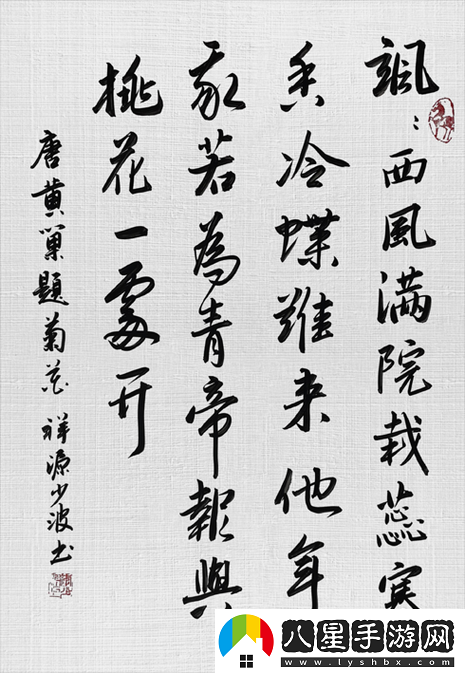 颯〻西風滿院栽蕊寒
香冷蝶難来他年
我若為青帝報與
桃花一處开
唐黄巢題菊花 祥源少波书
八星手游网
www.lyshbx.com